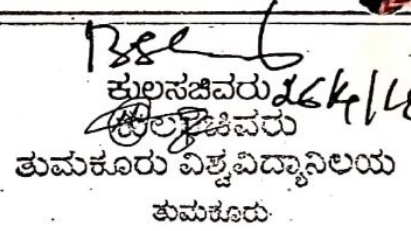 ಕುಲಸಚಿವರು
ಕುಲಸಚಿವರು
ತುಮಕೂರು ವಿಶ್ವವಿದ್ಯಾನಿಲಯ
ತುಮಕೂರು